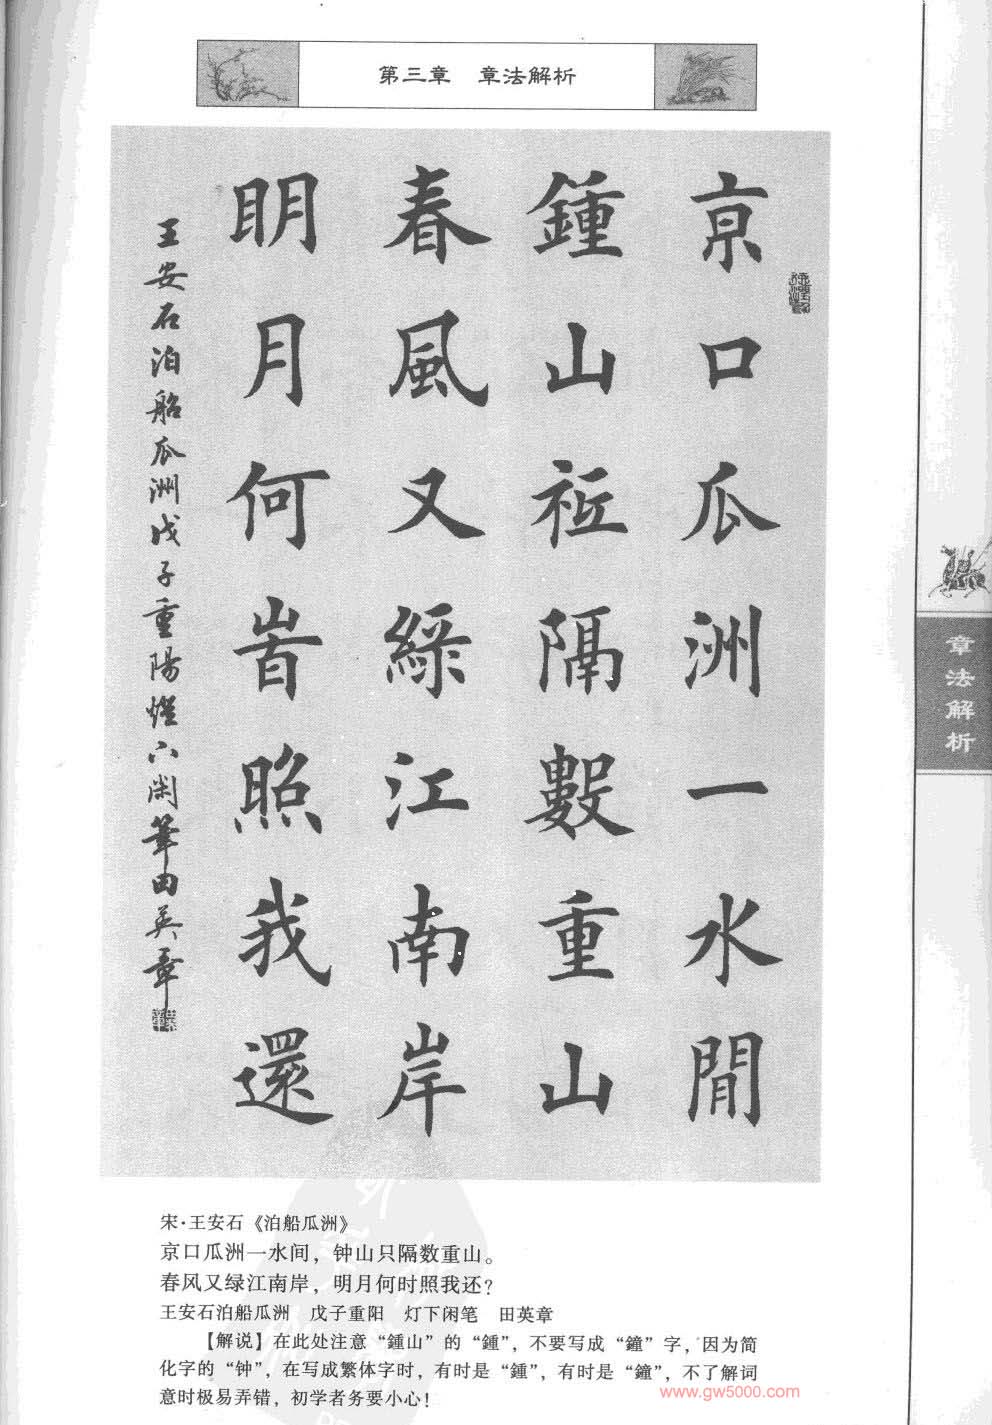 第三章　章法解析
京口瓜洲一水間
鍾山祗隔數重山
春風又綠江南岸
明月何旹照我還
王安石泊船瓜洲戊子重陽燈下閑筆田英章
章法解析
宋·王安石《泊船瓜洲》
京口瓜洲一水间，钟山只隔数重山。
春风又绿江南岸，明月何时照我还？
王安石泊船瓜洲　戊子重阳　灯下闲笔　田英章
【解说】在此处注意“鍾山”的“鍾”，不要写成“鐘”字，因为简
化字的“钟”，在写成繁体字时，有时是“鍾”，有时是“鐘”，不了解词
意时极易弄错，初学者务要小心！
www.gw5000.com